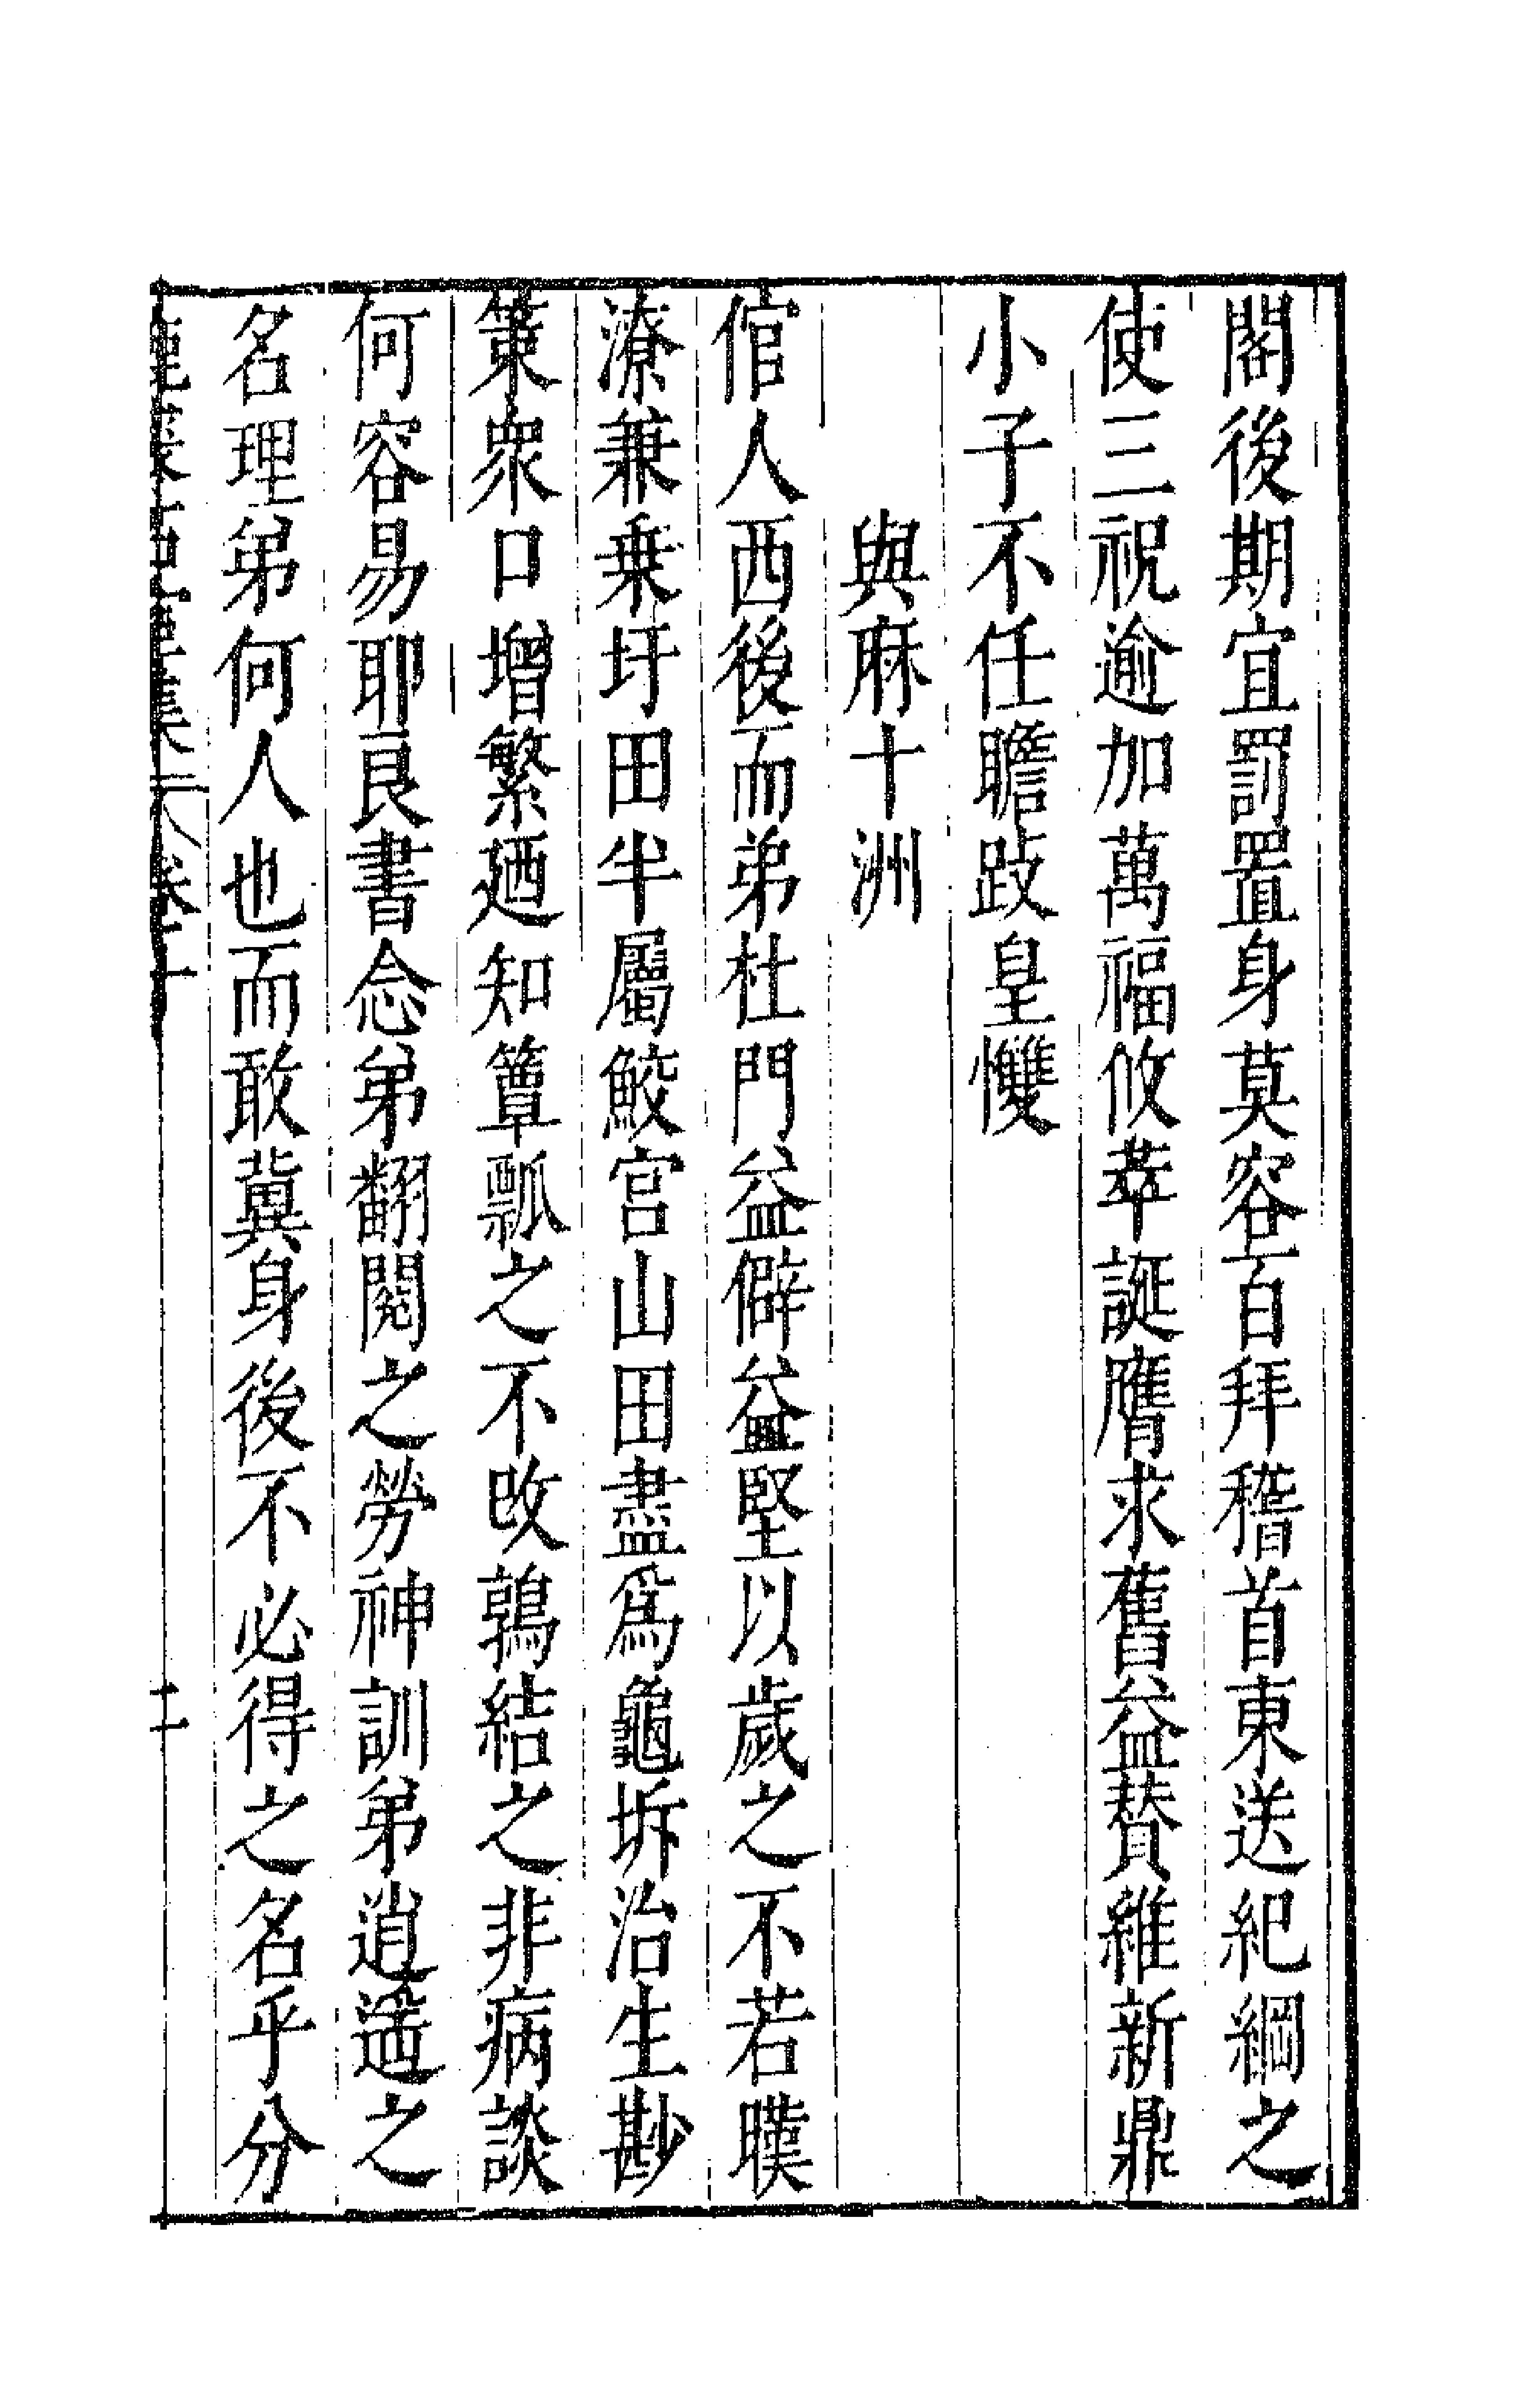 閣後期宜罰置身莫容百拜稽首東送紀綱之
使三祝逾加萬福攸萃誕膺求舊益贊維新鼎
小子不任瞻跂皇㦬
與麻十洲
倌人西後而弟杜門益僻益堅以歲之不若暵
潦兼乗圩田半屬鮫宮山田盡爲龜坼治生尠
策衆口增繁廼知簞瓢之不改鶉結之非病談
何容易耶良書念弟翻閱之勞神訓弟逍遥之
名理弟何人也而敢冀身後不必得之名乎分
集 卷十
二十